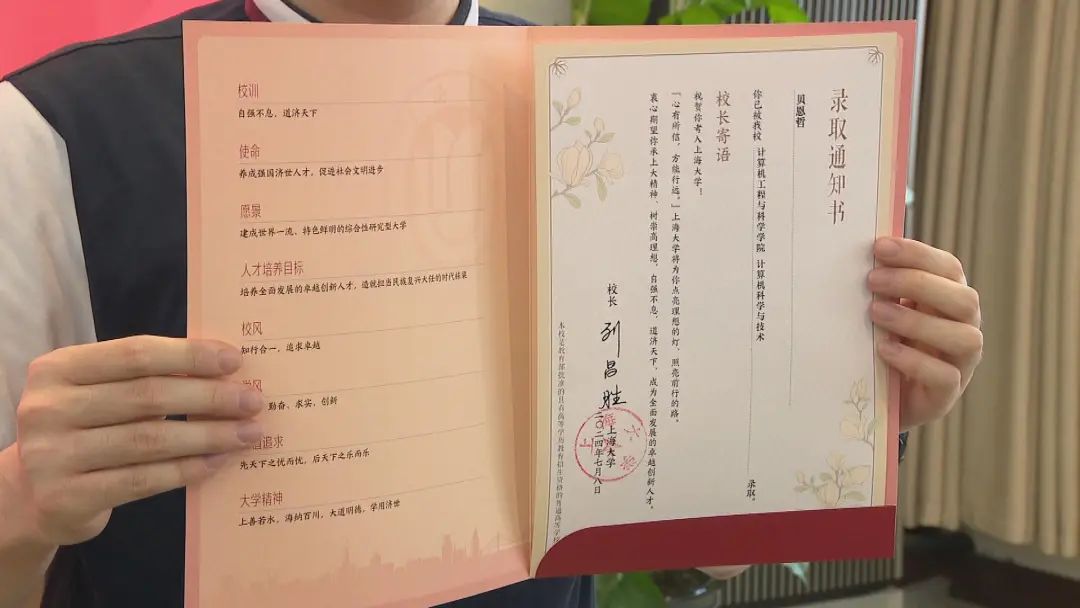 校训
自强不息，道济天下
使命
养成强国济世人才，促进社会文明进步
愿景
建成世界一流、特色鲜明的综合性研究型大学
人才培养目标
培养全面发展的卓越创新人才，造就担当民族复兴大任的时代栋梁
校风
知行合一，追求卓越
学风
勤奋、求实、创新
追求
先天下之忧而忧，后天下之乐而乐
大学精神
上善若水，海纳百川，大道明德，学用济世
录取通知书
贝恩哲
你已被我校 计算机工程与科学学院 计算机科学与技术 录取。
校长寄语
祝贺你考入上海大学！
“心有所信，方能行远。”上海大学将为你点亮理想的灯，照亮前行的路。
衷心期望你承上大精神，树崇高理想，自强不息，道济天下，成为全面发展的卓越创新人才。
校长 刘昌胜
上海大学
二〇二四年七月八日
本校是教育部批准的具有高等学历教育招生资格的普通高等学校